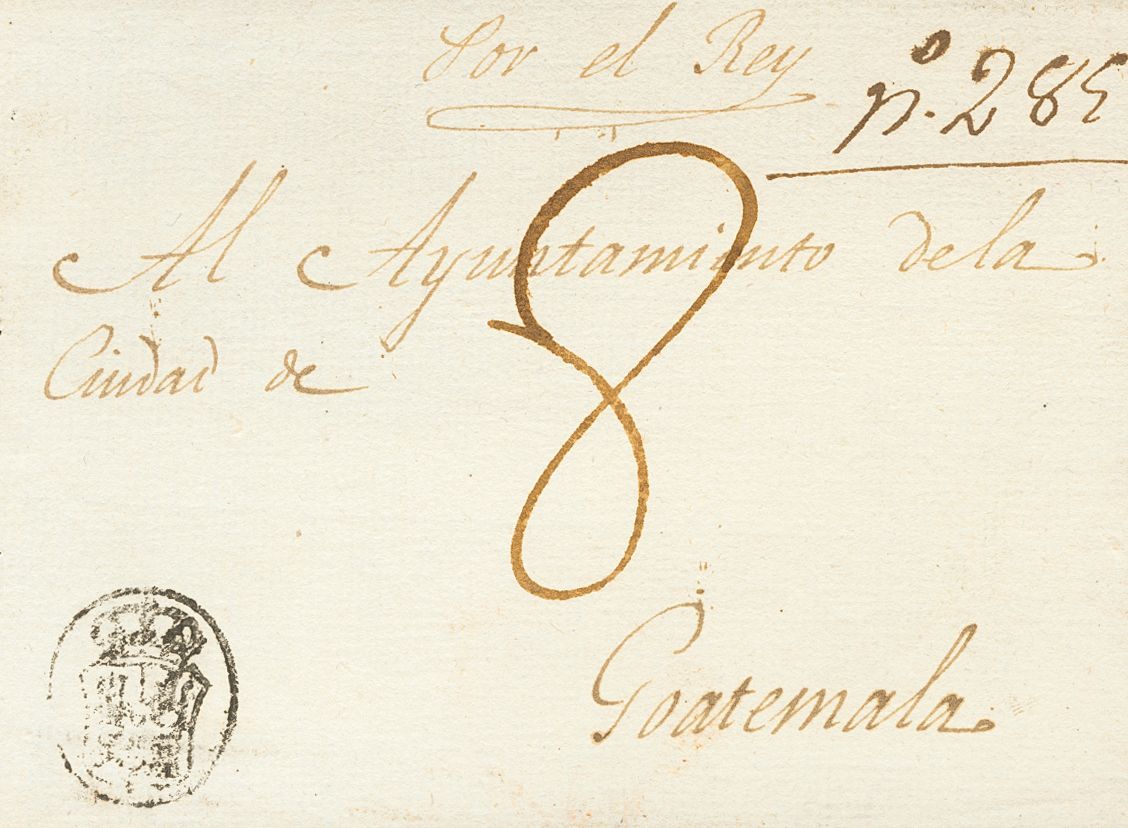 Por el Rey
nº. 285
Al Ayuntamiento de la
Ciudad de
8
Goatemala.